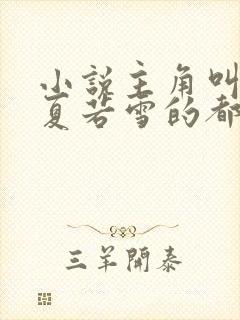 小说主角叫
夏若雪的都
三羊開泰